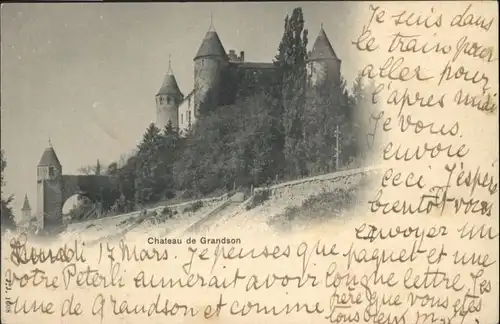 Je suis dans
le train pour
aller pour
l'après midi
Je vous
envoie
ceci J'espère
bientôt vous
envoyer un
paquet et une
longue lettre, J'es
père que vous êtes
tous bien
Chateau de Grandson
Lundi 17 Mars. Je pense que
votre Peterli aimerait avoir
une de Grandson et comme